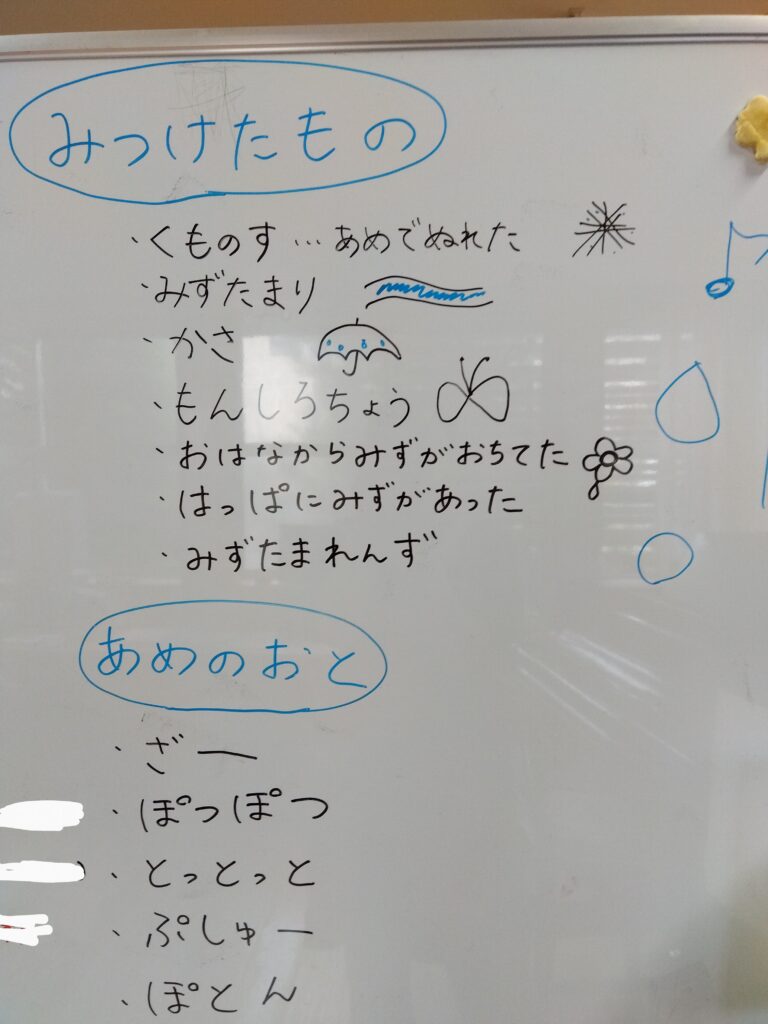 みつけたもの
・くものす…あめでぬれた
・みずたまり
・かさ
・もんしろちょう
・おはなからみずがおちてた
・はっぱにみずがあった
・みずたまれんず
あめのおと
・ざー
・ぽつぽつ
・とっとっと
・ぷしゅー
・ぽとん